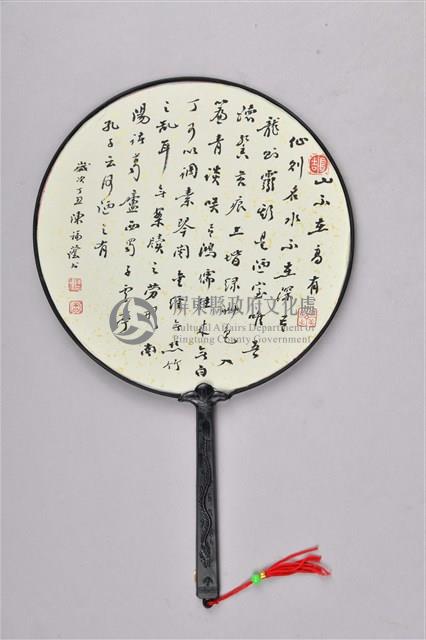 山不在高有
仙則名水不在深有
龍則靈斯是陋室唯吾
德馨苔痕上堦綠草色入
簾青談笑有鴻儒往來無白
丁可以調素琴閱金經無絲竹
之亂耳無案牘之勞形南
陽諸葛廬西蜀子雲亭
孔子云何陋之有
歲次丁丑陳福蔭书
屏東縣政府文化處
Cultural Affairs Department of
Pingtung County Government